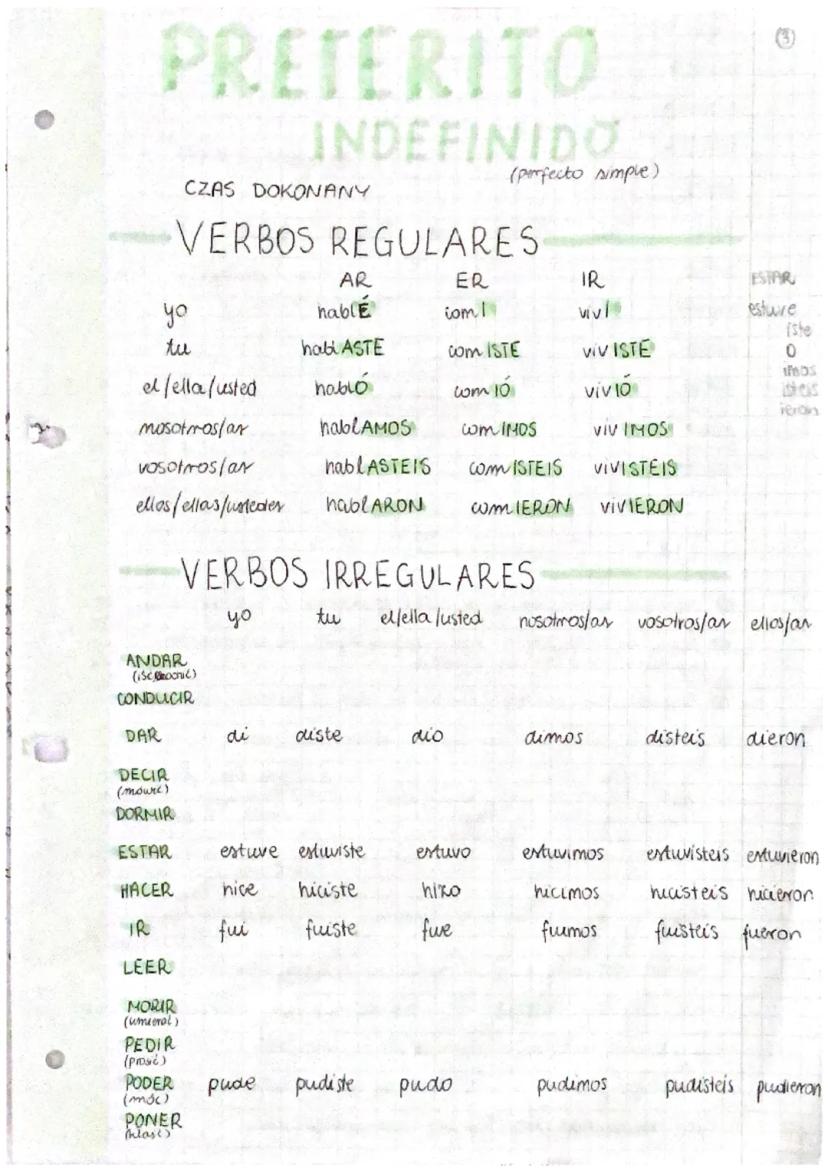 (3)
PRETERITO
INDEFINIDO
(perfecto simple)
CZAS DOKONANY
VERBOS REGULARES
AR ER IR ESTAR
yo hablÉ comÍ vivÍ estuve
tu hablASTE comISTE vivISTE iste
el/ella/usted hablÓ comIÓ vivIÓ o
imos
nosotros/as hablAMOS comIMOS vivIMOS isteis
ieron
vosotros/as hablASTEIS comISTEIS vivISTEIS
ellos/ellas/ustedes hablARON comIERON vivIERON
VERBOS IRREGULARES
yo tu el/ella/usted nosotros/as vosotros/as ellos/as
ANDAR
CONDUCIR
DAR di diste dio dimos disteis dieron
DECIR
(mówić)
DORMIR
ESTAR estuve estuviste estuvo estuvimos estuvisteis estuvieron
HACER hice hiciste hizo hicimos hicisteis hicieron
IR fui fuiste fue fuimos fuisteis fueron
LEER
MORIR
(umierać)
PEDIR
(prosić)
PODER pude pudiste pudo pudimos pudisteis pudieron
(móc)
PONER
(kłaść)